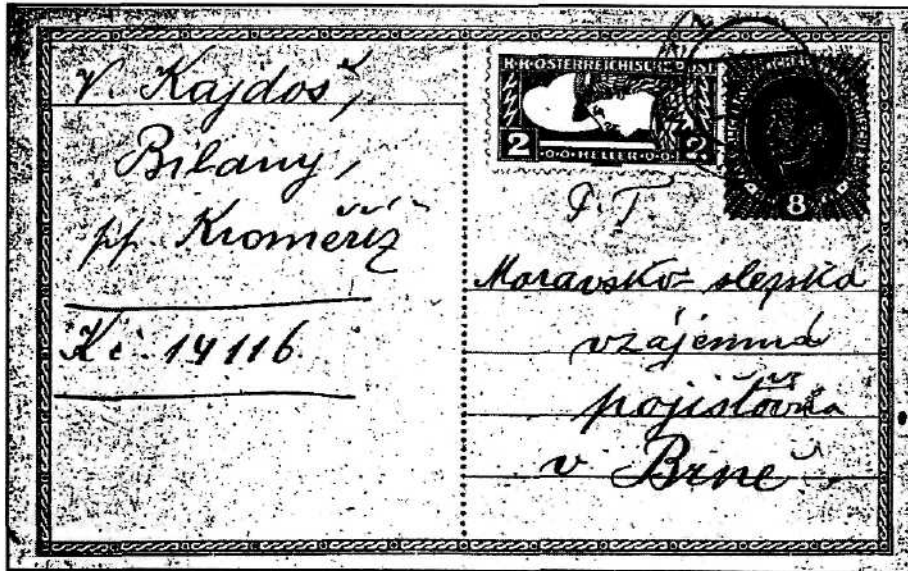 V. Kajdoš,
Bílany,
pp. Kroměříž
K č. 14116.
K.K. ÖSTERREICHISCHE POST
2 HELLER 2
8
P. T.
Moravsko-slezská
vzájemná
pojišťovna
v Brně.